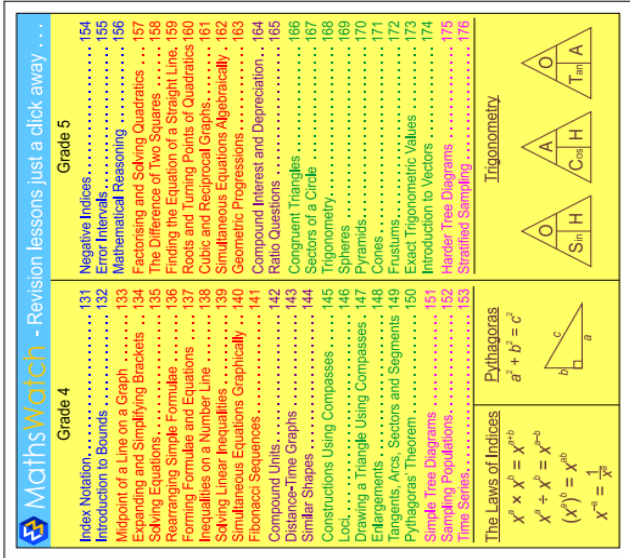 MathsWatch - Revision lessons just a click away . . .
Grade 4
Index Notation 131
Introduction to Bounds 132
Midpoint of a Line on a Graph 133
Expanding and Simplifying Brackets 134
Solving Equations 135
Rearranging Simple Formulae 136
Forming Formulae and Equations 137
Inequalities on a Number Line 138
Solving Linear Inequalities 139
Simultaneous Equations Graphically 140
Fibonacci Sequences 141
Compound Units 142
Distance-Time Graphs 143
Similar Shapes 144
Constructions Using Compasses 145
Loci 146
Drawing a Triangle Using Compasses 147
Enlargements 148
Tangents, Arcs, Sectors and Segments 149
Pythagoras' Theorem 150
Simple Tree Diagrams 151
Sampling Populations 152
Time Series 153
Grade 5
Negative Indices 154
Error Intervals 155
Mathematical Reasoning 156
Factorising and Solving Quadratics 157
The Difference of Two Squares 158
Finding the Equation of a Straight Line 159
Roots and Turning Points of Quadratics 160
Cubic and Reciprocal Graphs 161
Simultaneous Equations Algebraically 162
Geometric Progressions 163
Compound Interest and Depreciation 164
Ratio Questions 165
Congruent Triangles 166
Sectors of a Circle 167
Trigonometry 168
Spheres 169
Pyramids 170
Cones 171
Frustums 172
Exact Trigonometric Values 173
Introduction to Vectors 174
Harder Tree Diagrams 175
Stratified Sampling 176
The Laws of Indices
xᵃ × xᵇ = xᵃ⁺ᵇ
xᵃ ÷ xᵇ = xᵃ⁻ᵇ
(xᵃ)ᵇ = xᵃᵇ
x⁻ᵃ = 1/xᵃ
Pythagoras
a² + b² = c²
b c
a
Trigonometry
O
Sin H
A
Cos H
O
Tan A